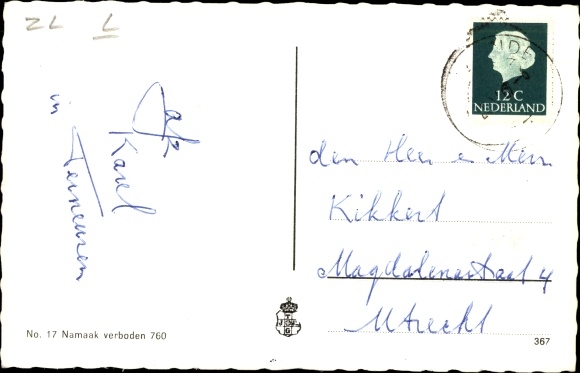 ZL L
in Terneuzen
Karel
den Heer en Mevr
Kikkert
Magdalenastraat 4
Utrecht
12 C
NEDERLAND
No. 17 Namaak verboden 760
367